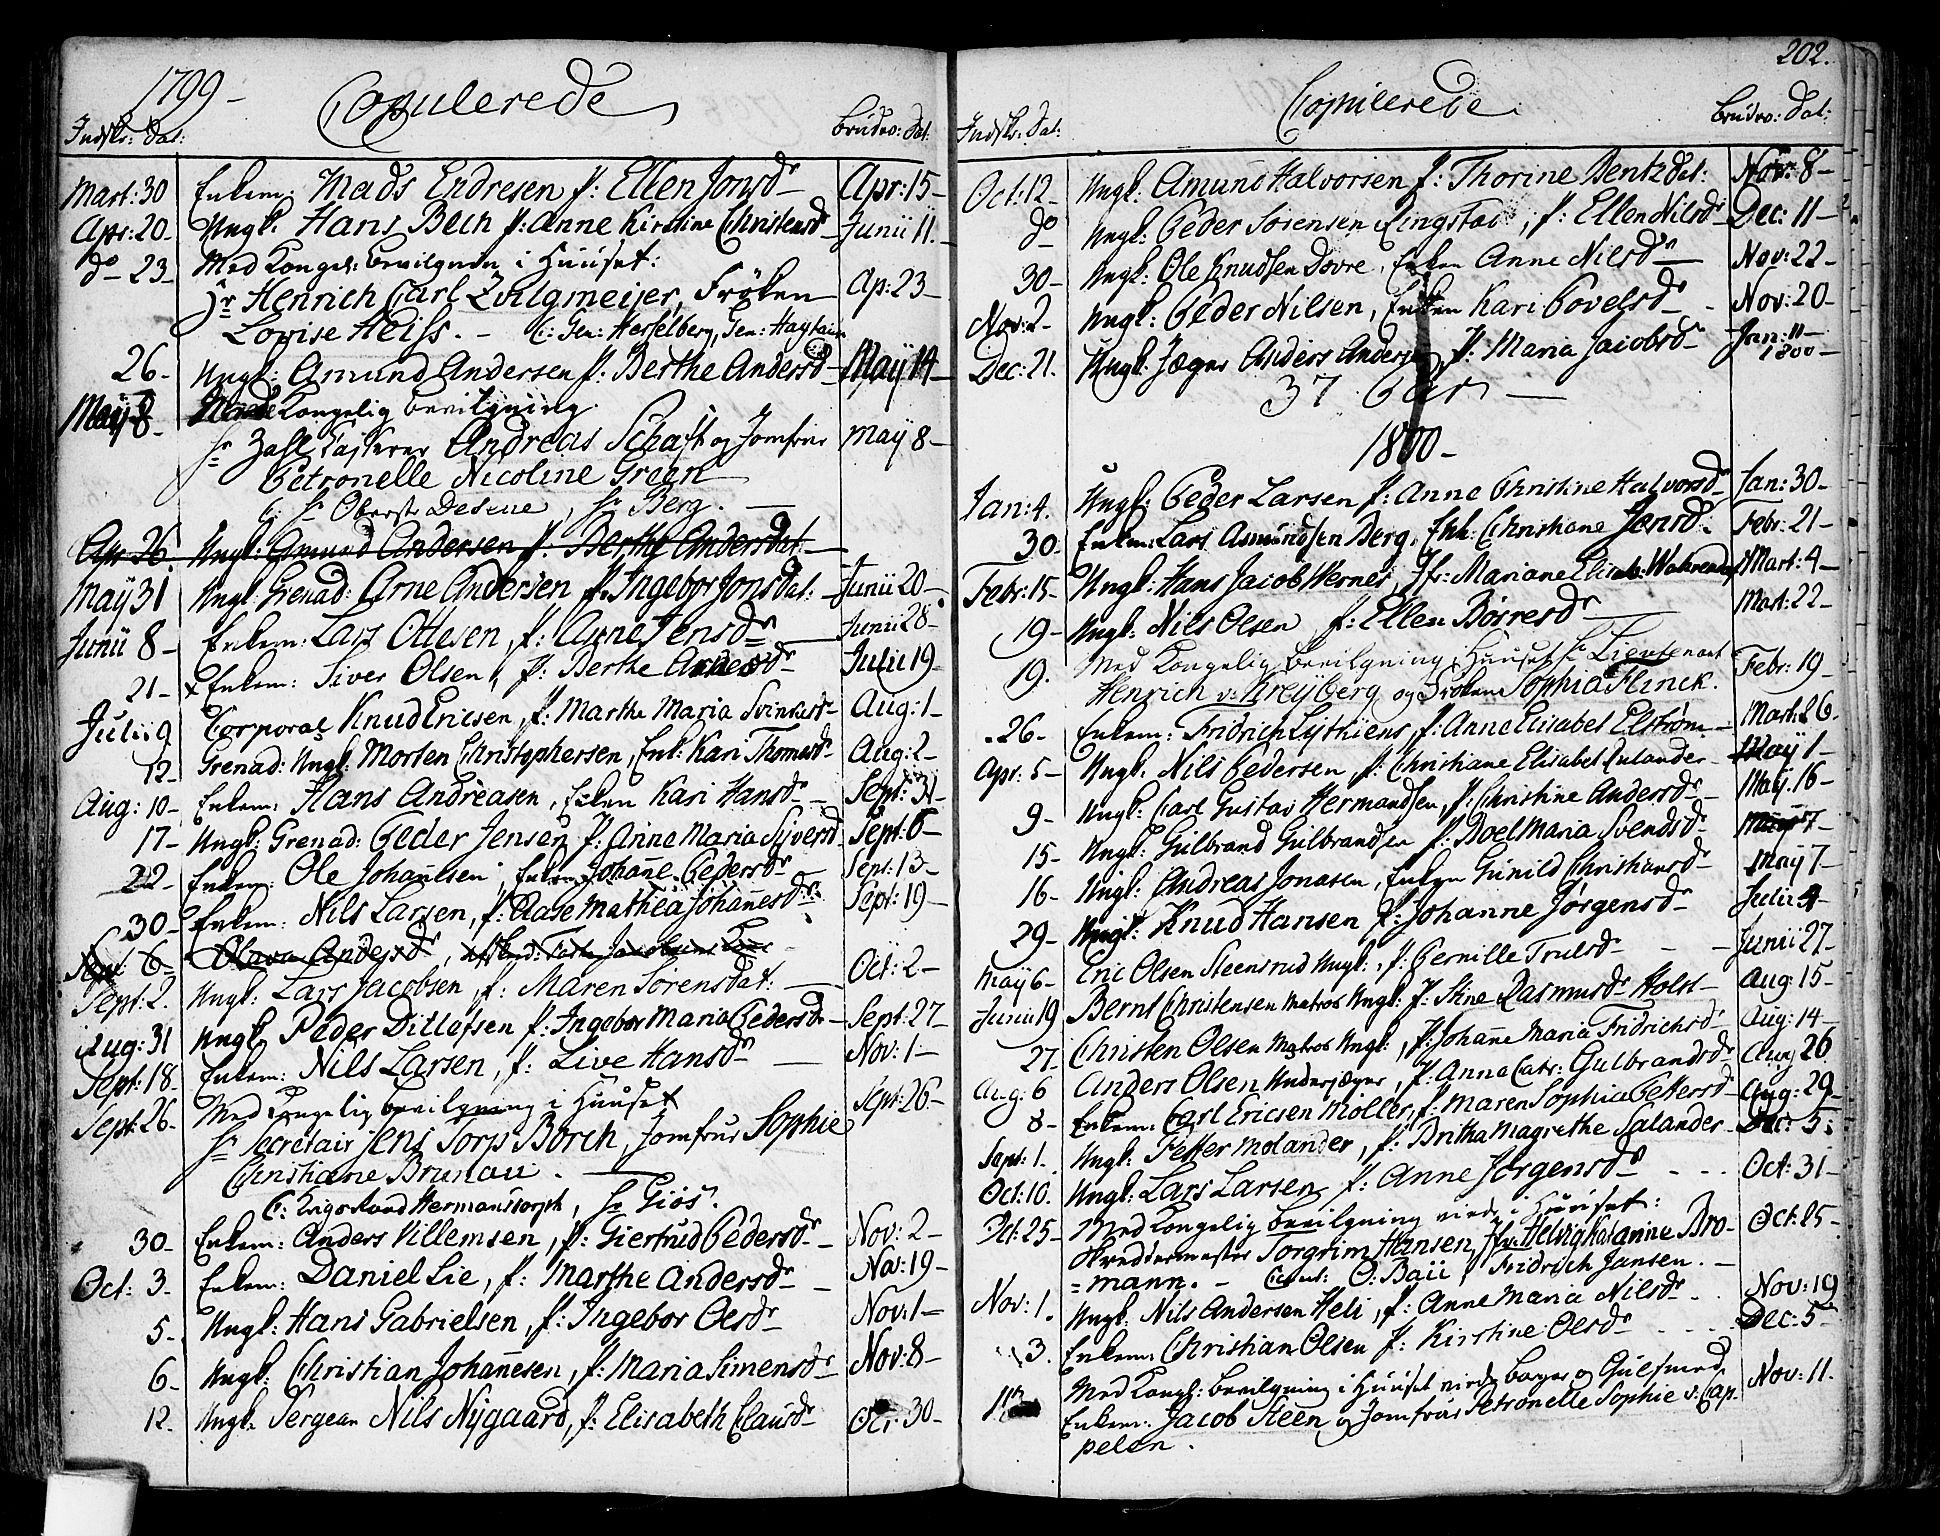 1799 – Copulerede
Indskr: dat: Brudev: Dat:
Mart: 30 Enkem: Mads Endresen P: Ellen Jonsdr – Apr: 15 –
Apr: 20 – Ungk: Hans Bech P: Anne Kirstine Christensdr – Junii 11. –
do – 23 – Med Kongel: bevilgning i Huuset:
Hr Henrich Carl Zvilgmeijer, Frøken Ap: 23 –
Lovise Heiss. – C: Gen: Hesselberg, Gen:
26 – Ungk: Amund Andersen P: Berthe Andersdr – Maÿ 14 –
Maÿ 8 – Med Kongelig bevilgning
Hr Zahl Casserer Andreas Schaft og Jomfrue Maÿ 8 –
Petronelle Nicoline Green
C: Hr Oberst Desene, Hr Berg. –
Apr 26. Ungk: Amund Andersen P. Berthe Andersdat: –
Maÿ 31 Ungk: Grenad: Arne Andersen P. Ingebor Jonsdat: – Junii 20 –
Junii 8 – Enkem: Lars Ottesen, P: Anne Jensdr – Junii 28 –
21 – x Enkem: Siver Olsen, P: Berthe Andersdr – Julii 19
Julii 9 Corporal Knud Ericsen, P: Marthe Maria Aug: 1 –
12 – Grenad: Ungk: Morten Christophersen, Enk: Kari Thomasdr – Aug: 2 –
Aug: 10 – Enkem: Hans Andreasen, Enken Kari Hansdr – Sept: –
17 – Ungk: Grenad: Peder Jensen P: Anne Maria Syversd Sept: 6 –
22 – Enkem: Ole Johannsen, Enken Johanne Pedersdr Sept: 13 –
30 – Enkem: Nils Larsen, P: Aase Mathea Johannesdr: Sept: 19 –
6 – Olava Andersdr
Sept: 2. Ungk: Lars Jacobsen, P: Maren Sørensdat: – Oct: 2 –
Aug: 31 Ungk. Peder Ditlefsen P: Ingebor Maria Pedersdr – Sept: 27 –
Sept: 18 – Enkem: Nils Larsen, P: Live Hansdr – Nov: 1 –
Sept: 26 – Med Kongelig bevilgning i Huuset Sept: 26 –
Hr Secretair Jens Torp Borch, Jomfrue Sophie
Christiane Brunau. –
C: Krigsraad Hermanstorph, Hr Giøs.
30 – Enkem: Anders Villemsen, P: Giertrud Pedersdr – Nov: 2 –
Oct: 3 – Enkem: Daniel Lie, P: Marthe Andersdr – Nov: 19 –
5 – Ungk: Hans Gabrielsen, P: Ingebor Olsdr – Nov: 1 –
6 – Ungk: Christian Johannesen, P: Maria Simensdr Nov: 8 –
12 – Ungk: Sergean Nils Nÿgaard, P: Elisabeth Clausdr Oct: 30 –
202.
Copulerede.
Indskr: Dat: Brudev: Dat:
Oct: 12 – Ungk: Amund Halvorsen P: Thorine Bentzdat: Nov: 8 –
do – Ungk: Peder Sørensen Ringstad, P: Ellen Nilsdr Dec: 11 –
30 – Ungk: Ole Knudsen Dovre, Enken Anne Nilsdr – Nov: 22 –
Nov: 2 – Ungk: Peder Nilsen, Enken Kari Povelsdr – Nov: 20 –
Dec: 21. Ungk: Jæger Anders Andersen P: Maria Jacobsdr – Jan: 11 – 1800 –
37 Par –
1800 –
Jan: 4. Ungk: Peder Larsen P: Anne Christine Halvorsdr – Jan: 30 –
30 – Enkem: Lars Asmundsen Berg, Enk: Christiane Jensdr. Febr: 21 –
Febr: 15 – Ungk: Hans Jacob Hernes, Jfr: Mariane Elisab: Mart: 4 –
19 – Ungk: Nils Olsen, P: Ellen Børresdr Mart: 22 –
19. Med Kongelig bevilgning i Huuset Hr Lieutenant Febr: 19 –
Henrich v: Kreÿberg og Frøken Sophia Flinck.
26 – Enkem: Fridrich Lythiens, P: Anne Elisabet Elstrøm – Mart: 26 –
Apr: 5 – Ungk. Nils Pedersen, P: Christiane Elisabet Rulander – Maÿ 1 –
9 – Ungk: Carl Gustav Hermandsen, P: Christine Andersdr – Maÿ. 16 –
15 – Ungk: Gulbrand Gulbrandsen P: Boel Maria Svendsdr – Maÿ 7 –
16 – Ungk: Andreas Jonasen, Enken Gunild Christiansdr Maÿ 7 –
29 – Ungk: Knud Hansen P: Johanne Jørgensdr Julii 4 –
Maÿ 6 – Eric Olsen Steensrud Ungk:, P: Pernille Trulsdr – – Junii 27 –
Junii 19 Bernt Christensen Matros Ungk: P: Stine Rasmusdr Holst – Aug: 15 –
27. Christen Olsen Matros Ungk:, P: Johanne Maria Fridrichsdr – Aug: 14 –
Aug: 6 Anders Olsen Underjæger, P: Anne Catr: Gulbrandsdr – Aug 26
8 – Enkem: Carl Ericsen Møller, P: Maren Sophia Pettersdr – Aug: 29 –
Sept: 1. Ungk: Petter Molander, P: Britha Magrethe Salander – Dec: 5.
Oct: 10. Ungk: Lars Larsen P: Anne Jørgensdr – – Oct: 31 –
Oct: 25 – Med Kongelig bevilgning viede i Huuset: Oct: 25 –
Skredermester Torgrim Hansen, Jfr: Helvig Katarine Bro-
= mann. – Caut: O: Baÿ, Fridrich Jansen. –
Nov: 1. Ungk. Nils Andersen Heli, P: Anne Maria Nilsdr – Nov: 19
3. Enkem: Christian Olsen P: Kirstine Olsdr – – – Dec: 5 –
11 Med Kongl: bevilgning i Huuset viede borger og Gulsmed Nov: 11.
Enkem: Jacob Steen og Jomfrue Petronelle Sophie v: Cap-
pelen.